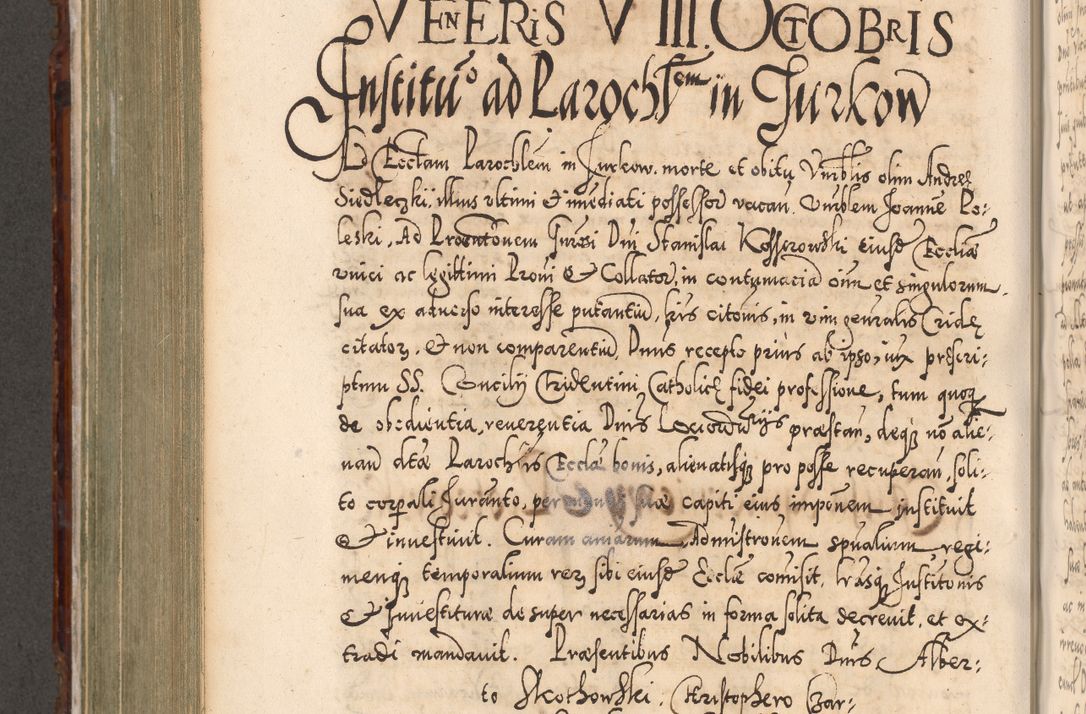 VENERIS VIII. OCTOBRIS
Institu° ad Paroch^lem in Jurkow
Ad Ecctam Parochlem in Jurkow. morte et obitu Vnrblis olim Andreę
Siedleczki, illius vltimi et imediati possessor vacan. Vnrblem Joanne Po:
leski, Ad Prntonem Gnrsi Dni Stanislai Kosserowski eiusd Eccliae
vnici ac legittimi Proni & Collator, in contumacia oim et singulorum
sua ex aduerso interesse putantiu, hris citonis, in vim genralis Cridę
citator, & non comparentiu, Dnus recepto prius ab ipso, iux prescri:
ptum SS. Concilij Tridentini Catholicę fidei professione, tum quoq
de obedientia, reuerentia Dnis Loci Ordinarijs praestan, deq no alie:
nan dtae Parochlis Ecclae bonis, alienatisq pro posse recuperan, soli:
to corpali Juranto, per suae capiti eius imponem instituit
& inuestiuit. Curam aniarum, Admistronem spualium regi:
menq temporalium rerz sibi eiusd Eccliae comisit, lrasq Institonis
& Inuestiturae de super necessarias in forma solita decreuit, et ex:
tradi mandauit. Praesentibus Nobilibus Dnis Alber:
to Skothowski, Christophero Czar: